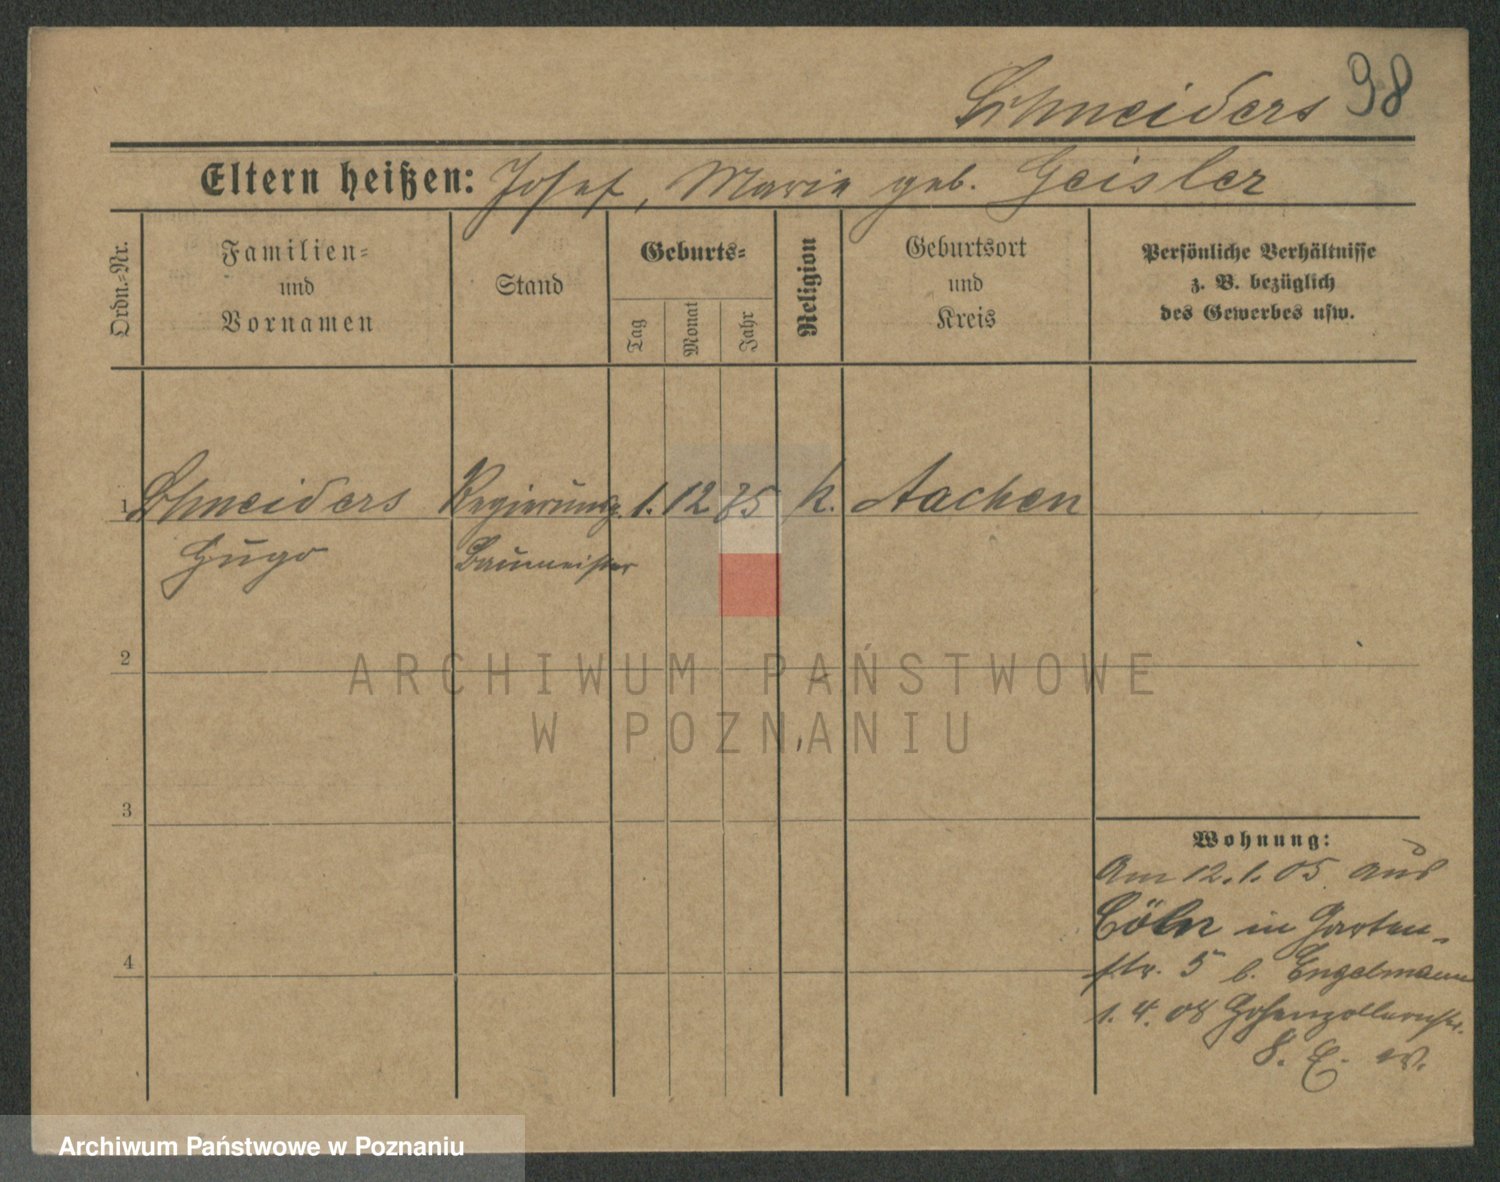 Schneiders 98
Eltern heißen: Josef, Maria geb. Geisler
Ordn.-Nr.
Familien-
und
Vornamen
Stand
Geburts-
Tag
Monat
Jahr
Religion
Geburtsort
und
Kreis
Persönliche Verhältnisse
z. B. bezüglich
des Gewerbes usw.
1 Schneiders Regierungs. 1. 12 75 k. Aachen
Hugo Baumeister
2
3
4
Wohnung:
Am 12.1.05 aus
Cöln in Garten-
str. 5 b. Engelmann
1.4.08 Hohenzollernstr.
8. E. w.
ARCHIWUM PAŃSTWOWE
W POZNANIU
Archiwum Państwowe w Poznaniu